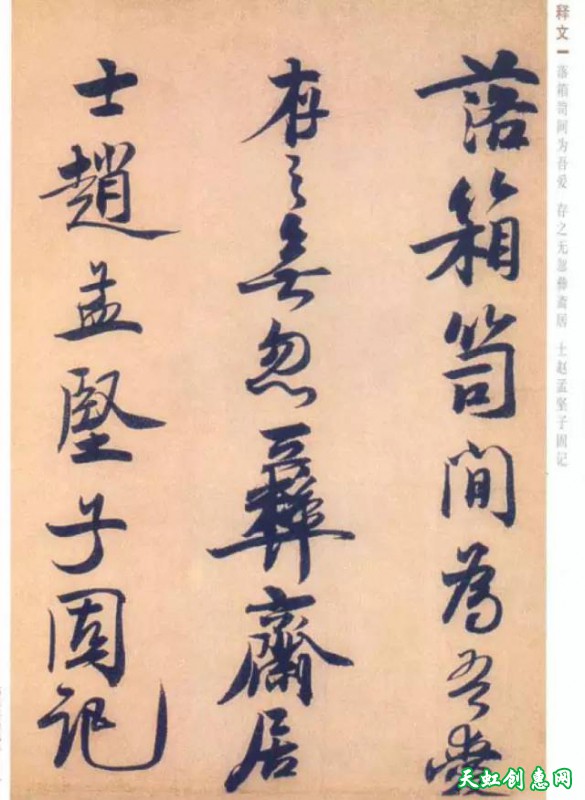 落箱笥間為吾愛
存之無忽彝齋居
士趙孟堅子固記
释文
落箱笥间为吾爱 存之无忽彝斋居 士赵孟坚子固记
天虹创惠网